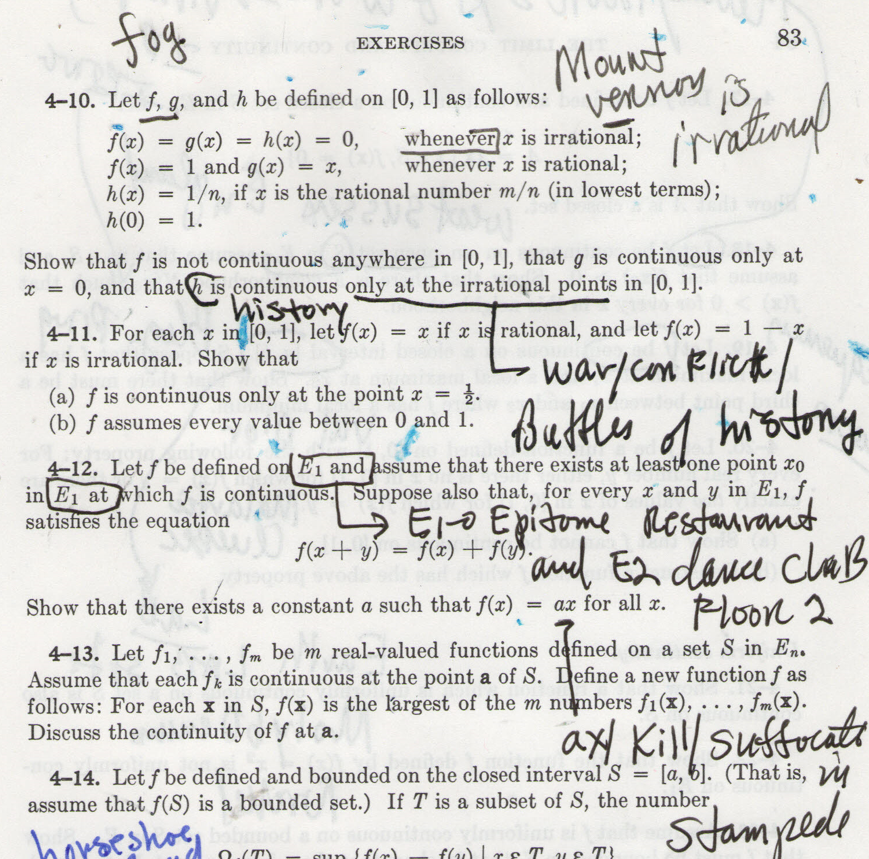 fog
EXERCISES 83
Mount
vernon is
irrational
4–10. Let f, g, and h be defined on [0, 1] as follows:
f(x) = g(x) = h(x) = 0, whenever x is irrational;
f(x) = 1 and g(x) = x, whenever x is rational;
h(x) = 1/n, if x is the rational number m/n (in lowest terms);
h(0) = 1.
Show that f is not continuous anywhere in [0, 1], that g is continuous only at
x = 0, and that h is continuous only at the irrational points in [0, 1].
history
4–11. For each x in [0, 1], let f(x) = x if x is rational, and let f(x) = 1 − x
if x is irrational. Show that:
war/conflict/
(a) f is continuous only at the point x = ½.
(b) f assumes every value between 0 and 1.
Battles of history
4–12. Let f be defined on E₁ and assume that there exists at least one point x₀
in E₁ at which f is continuous. Suppose also that, for every x and y in E₁, f
satisfies the equation
E1-0 Epitome Restaurant
f(x + y) = f(x) + f(y).
and E2 dance cluB
Floor 2
Show that there exists a constant a such that f(x) = ax for all x.
4–13. Let f₁, . . . , fₘ be m real-valued functions defined on a set S in Eₙ.
Assume that each fₖ is continuous at the point a of S. Define a new function f as
follows: For each x in S, f(x) is the largest of the m numbers f₁(x), . . . , fₘ(x).
Discuss the continuity of f at a.
ax/Kill/suffocate
in
stampede
4–14. Let f be defined and bounded on the closed interval S = [a, b]. (That is,
assume that f(S) is a bounded set.) If T is a subset of S, the number
horseshoe
Ω_f(T) = sup {f(x) − f(y) | x ε T, y ε T}